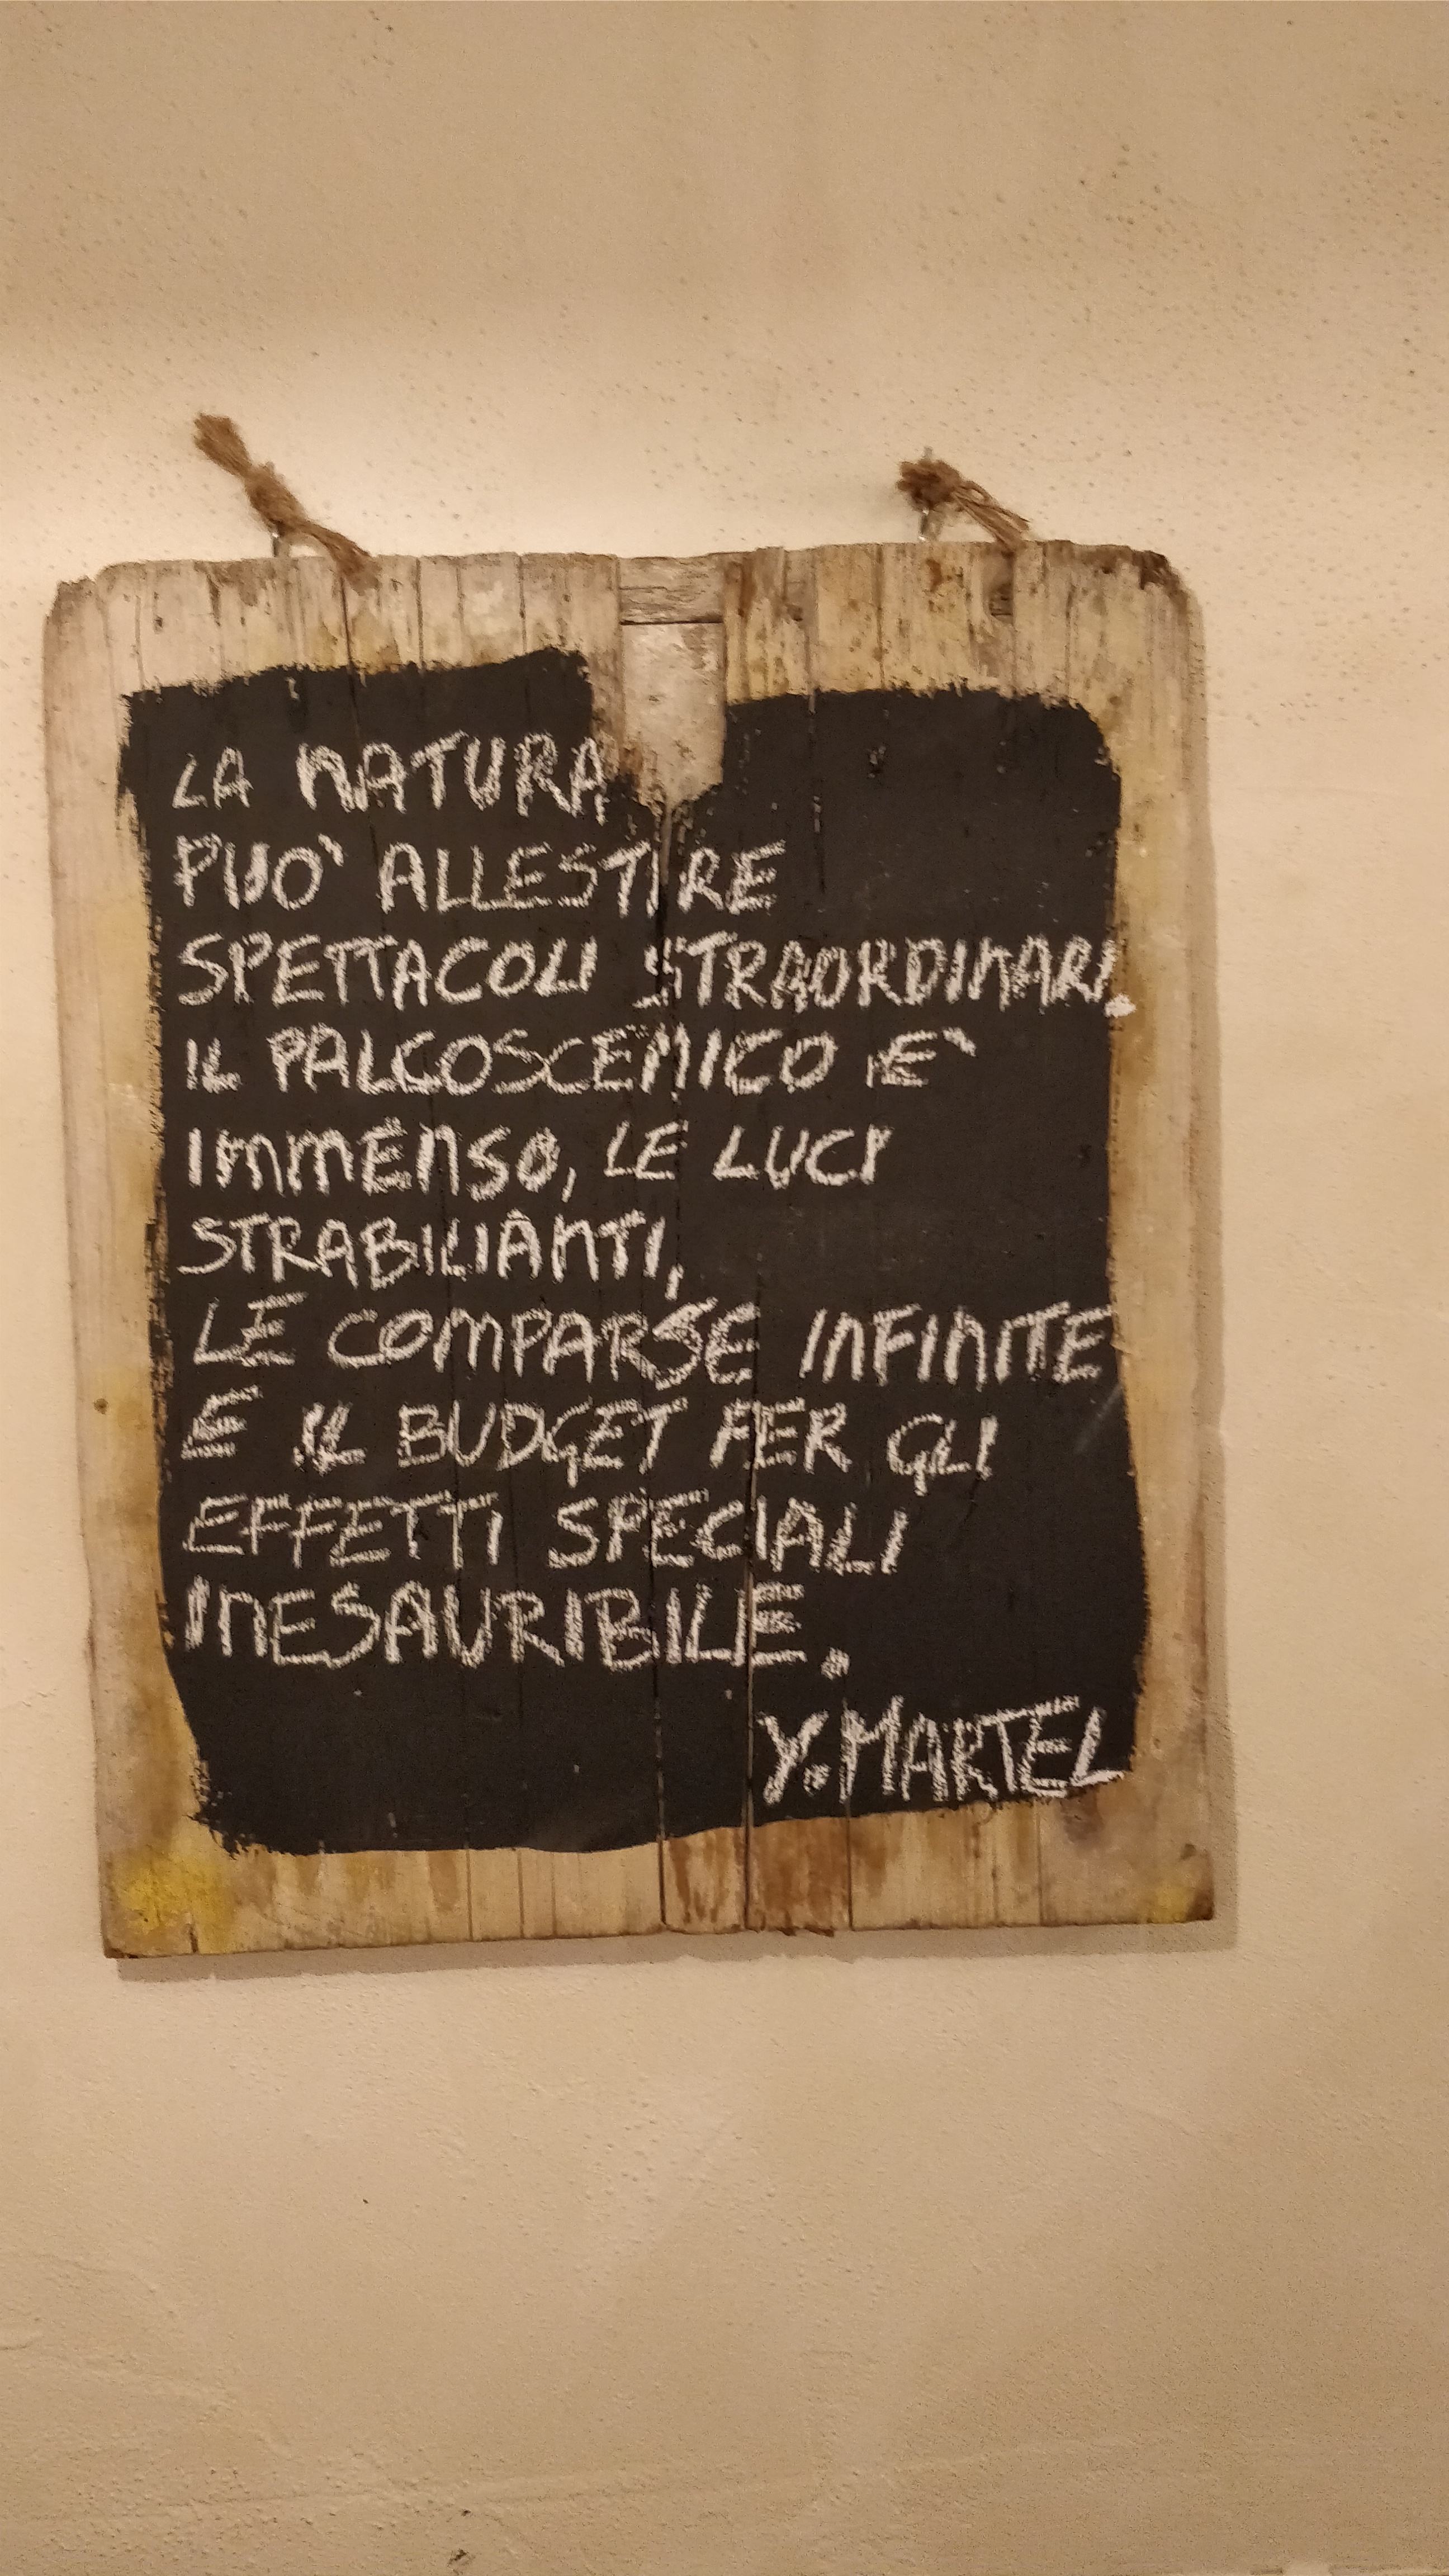 LA NATURA
PUO' ALLESTIRE
SPETTACOLI STRAORDINARI.
IL PALCOSCENICO E'
IMMENSO, LE LUCI
STRABILIANTI,
LE COMPARSE INFINITE
E IL BUDGET PER GLI
EFFETTI SPECIALI
INESAURIBILE.
Y. MARTEL